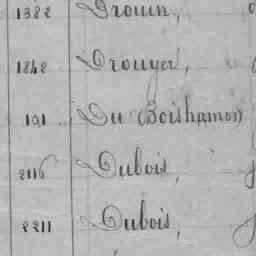 1382 Drouin,
1248 Drouyer,
191 Du Boishamon
2116 Dubois,
2211 Dubois,